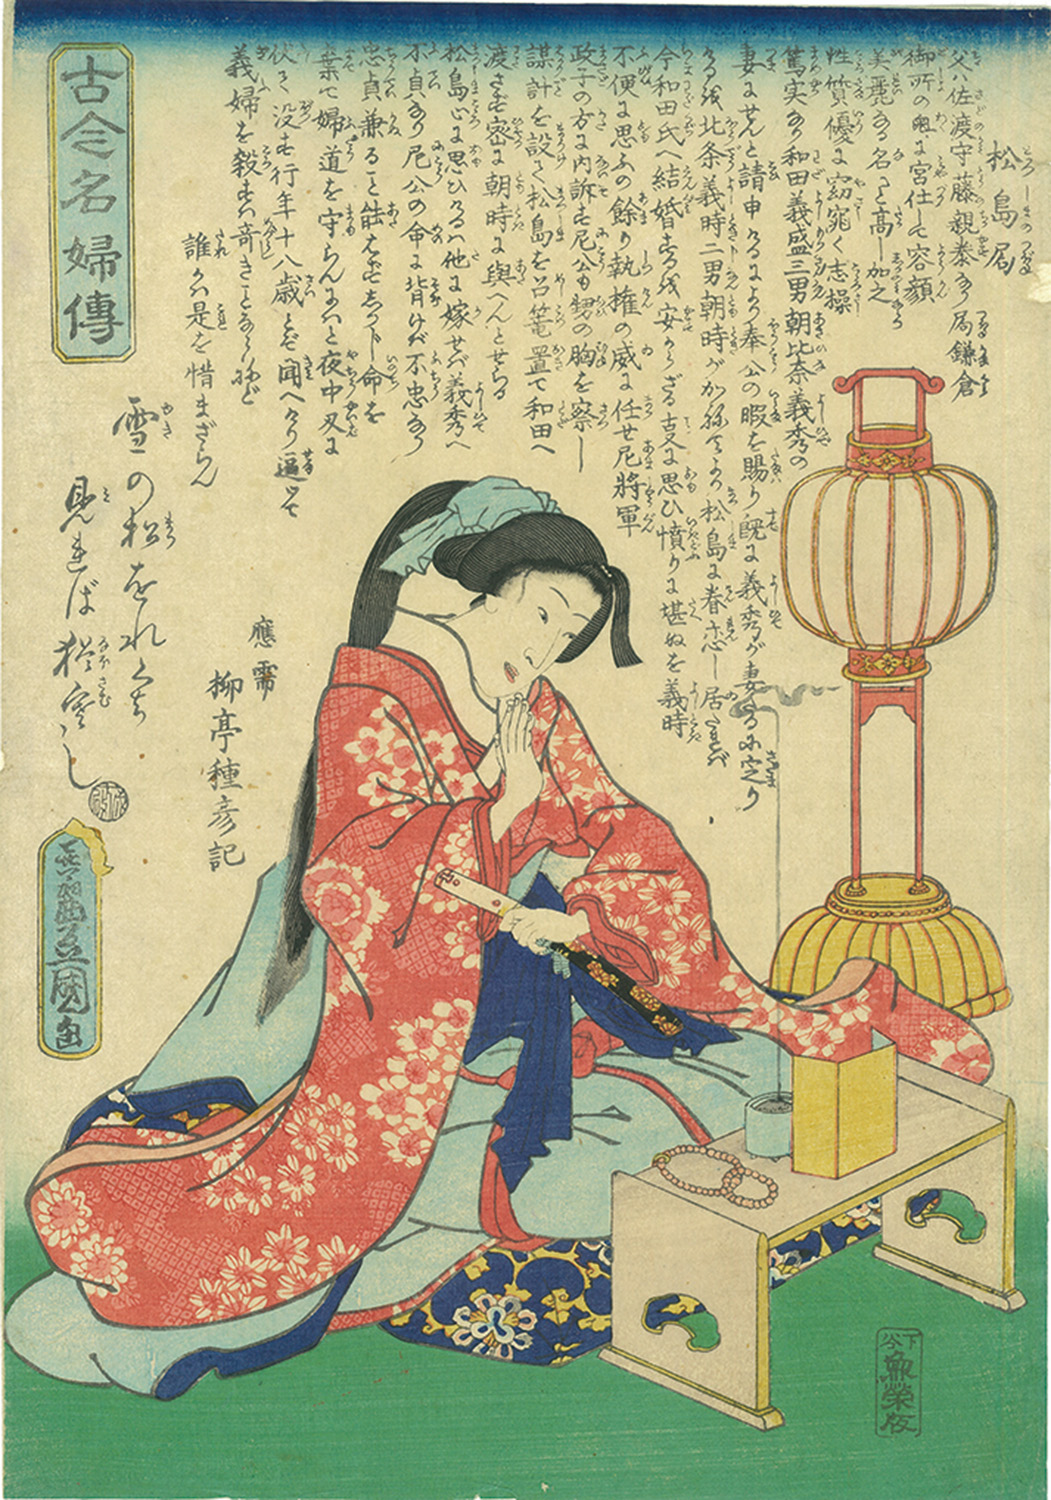 古今名婦傳
松島局
父ハ佐渡守藤親泰なり局鎌倉
御所の■に宮仕して容顔
美麗なる名さへ高し加之
性質優に窈窕く志操
篤実なり和田義盛三男朝比奈義秀の
妻にせんと請申けるにより奉公の暇を賜り既に義秀が妻たるに定り
けるを北条義時二男朝時がかねてより松島に眷恋し居たれば
今和田氏へ結婚するを安からざる事に思ひ憤りに堪ぬを義時
不便に思ふの餘り執権の威に任せ尼將軍
政子の方に内訴す尼公も甥の胸を察し
謀計を設て松島を召篭置て和田へ
渡さず密に朝時に與へんとせらる
松島心に思ひけるハ他に嫁せバ義秀へ
不貞なり尼公の命に背けバ不忠なり
忠貞兼ること能はずしかし命を
棄て婦道を守らんにハと夜中刄に
伏て没す行年十八歳とぞ聞へけり逼て
義婦を殺すハ奇きことならねど
誰かハ是を惜まざらん
雪の松をれくち
見れば猶寒し
應需
柳亭種彦記
豊国画
下谷
魚栄版